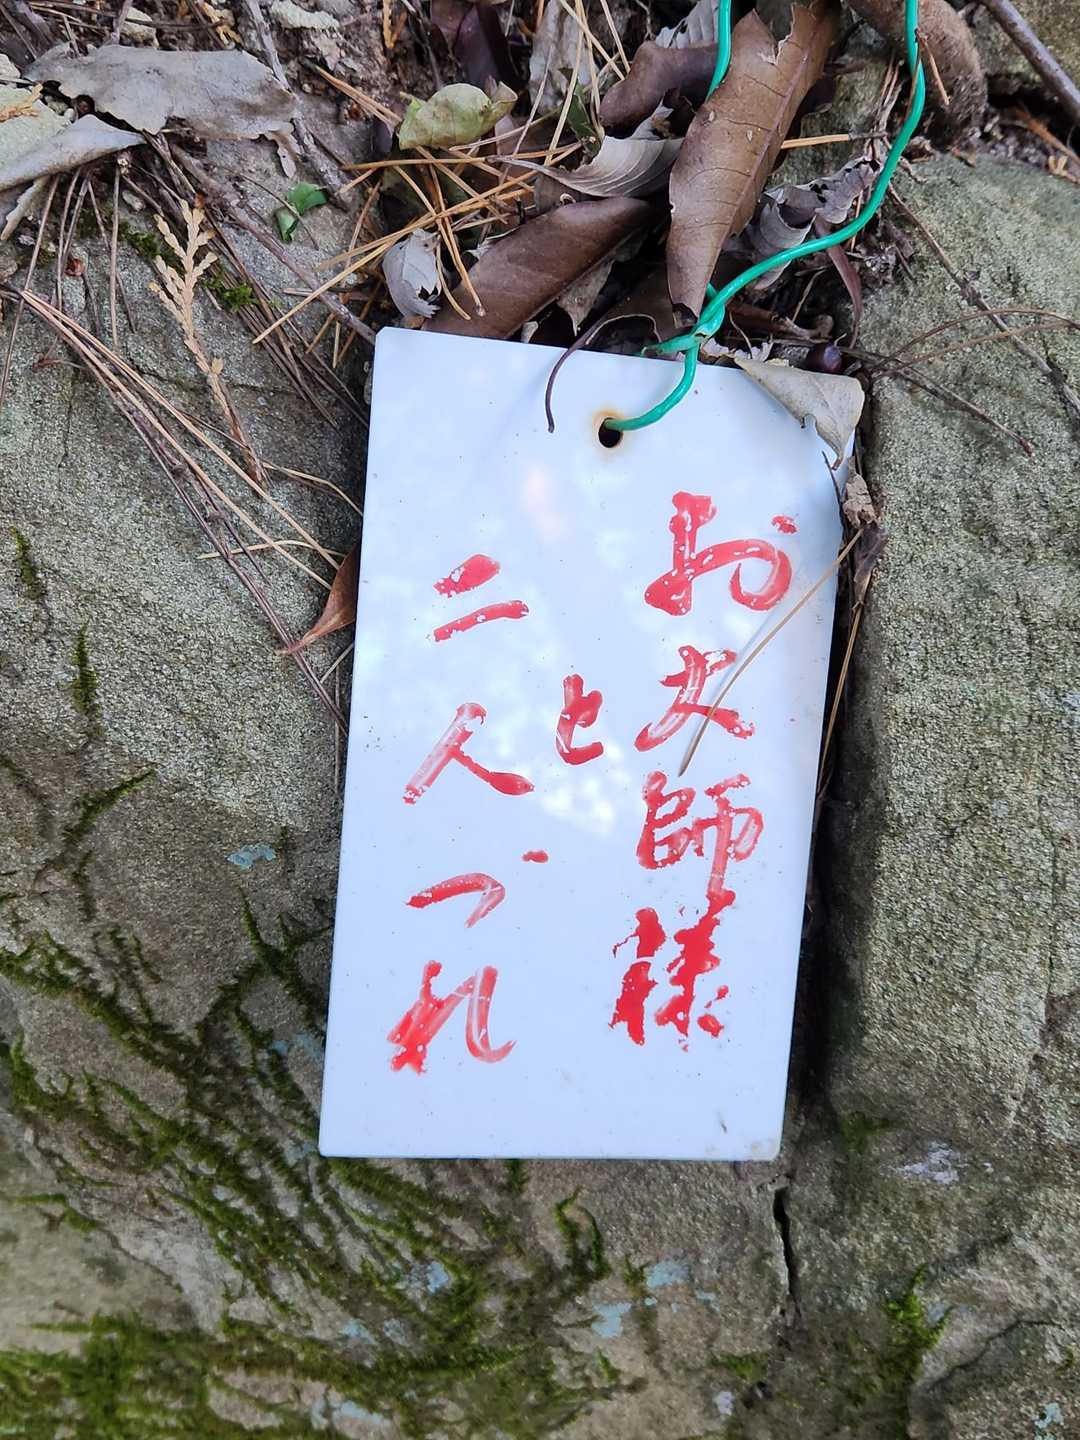 お大師様
と
二人づれ